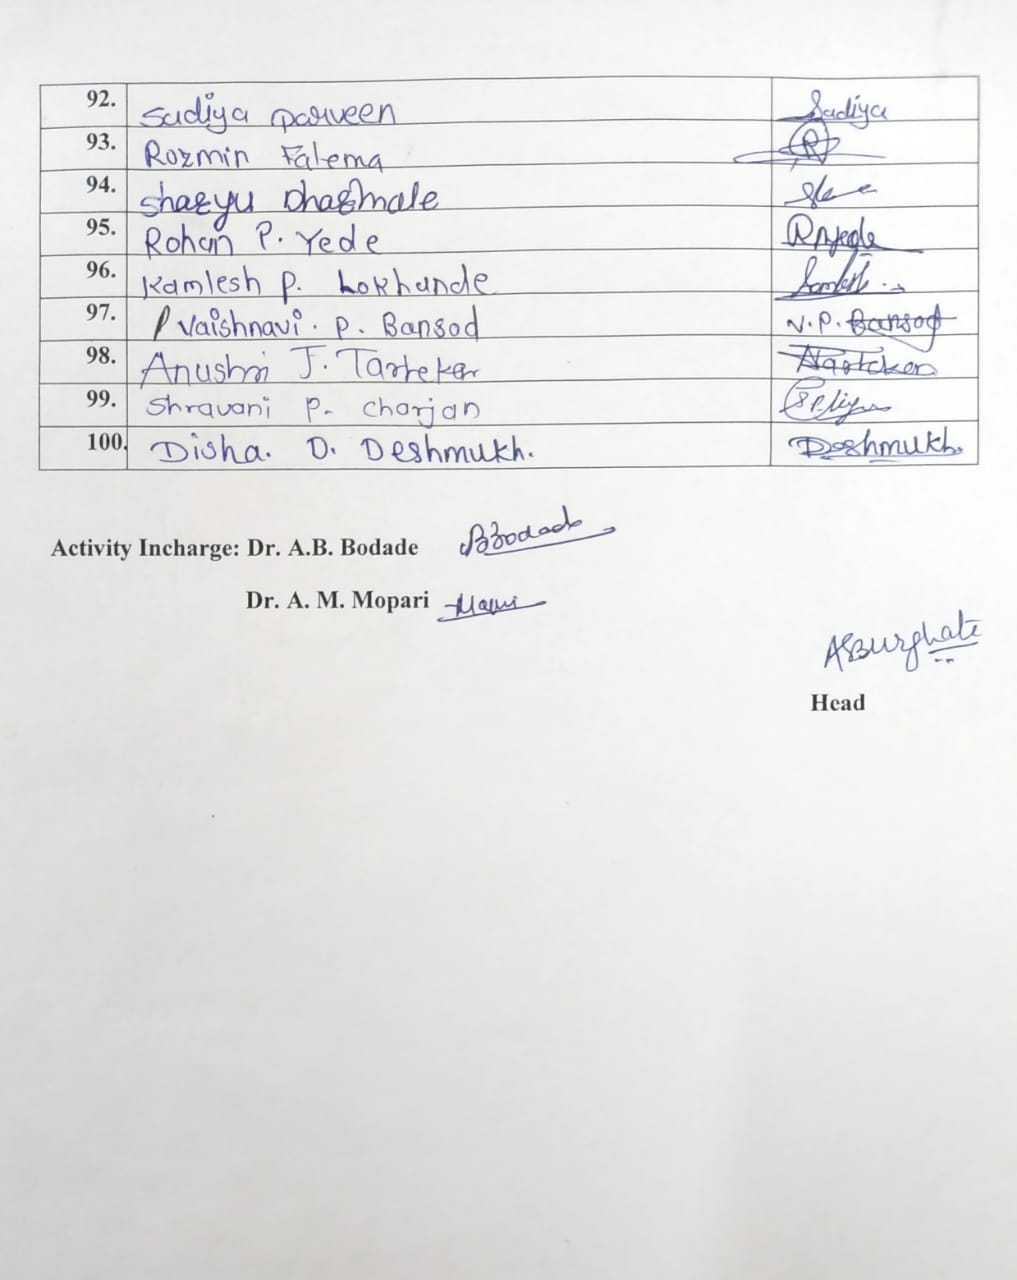 92. Sadiya parveen Sadiya
93. Rozmin Fatema
94. Sharyu Dharmale
95. Rohan P. Yede
96. Kamlesh P. Lokhande
97. Vaishnavi. P. Bansod V.P. Bansod
98. Anushri J. Tarrekar
99. Shravani P. Charjan
100. Disha. D. Deshmukh. Deshmukh.
Activity Incharge: Dr. A.B. Bodade ABBodade
Dr. A. M. Mopari
ASBurghate
Head